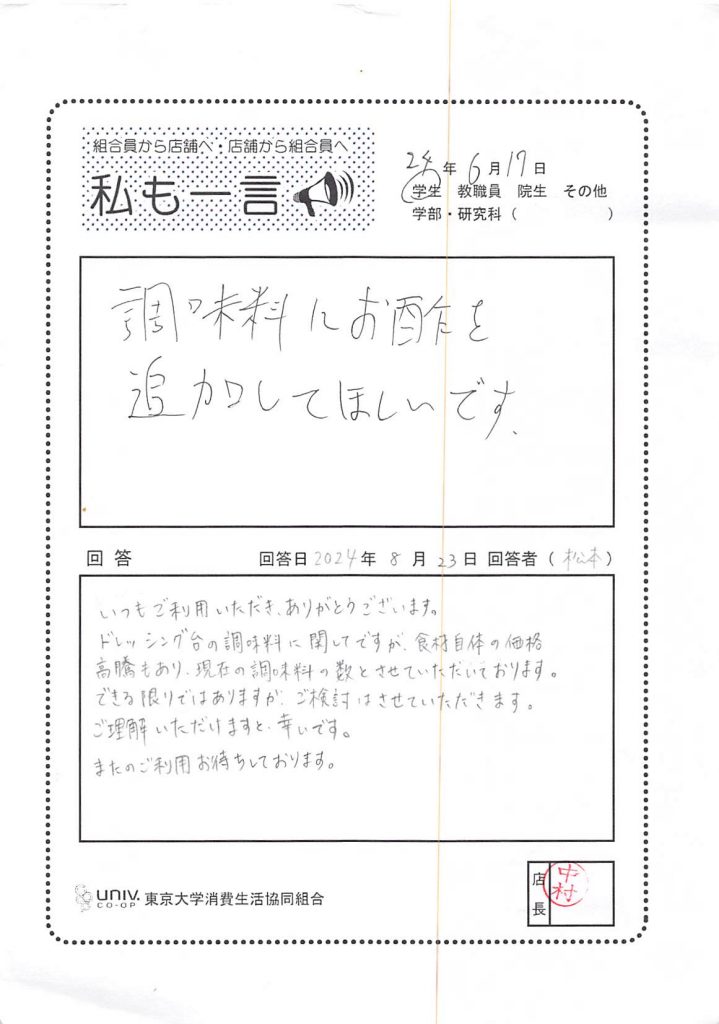 組合員から店舗へ・店舗から組合員へ
私も一言
24年 6月 17日
学生 教職員 院生 その他
学部・研究科( )
調味料にお酢を
追加してほしいです.
回答 回答日2024年 8月 23日 回答者(松本)
いつもご利用いただき、ありがとうございます。
ドレッシング台の調味料に関してですが、食材自体の価格
高騰もあり、現在の調味料の数とさせていただいております。
できる限りではありますが、ご検討はさせていただきます。
ご理解いただけますと、幸いです。
またのご利用お待ちしております。
UNIV.
CO-OP
東京大学消費生活協同組合
店長
中村